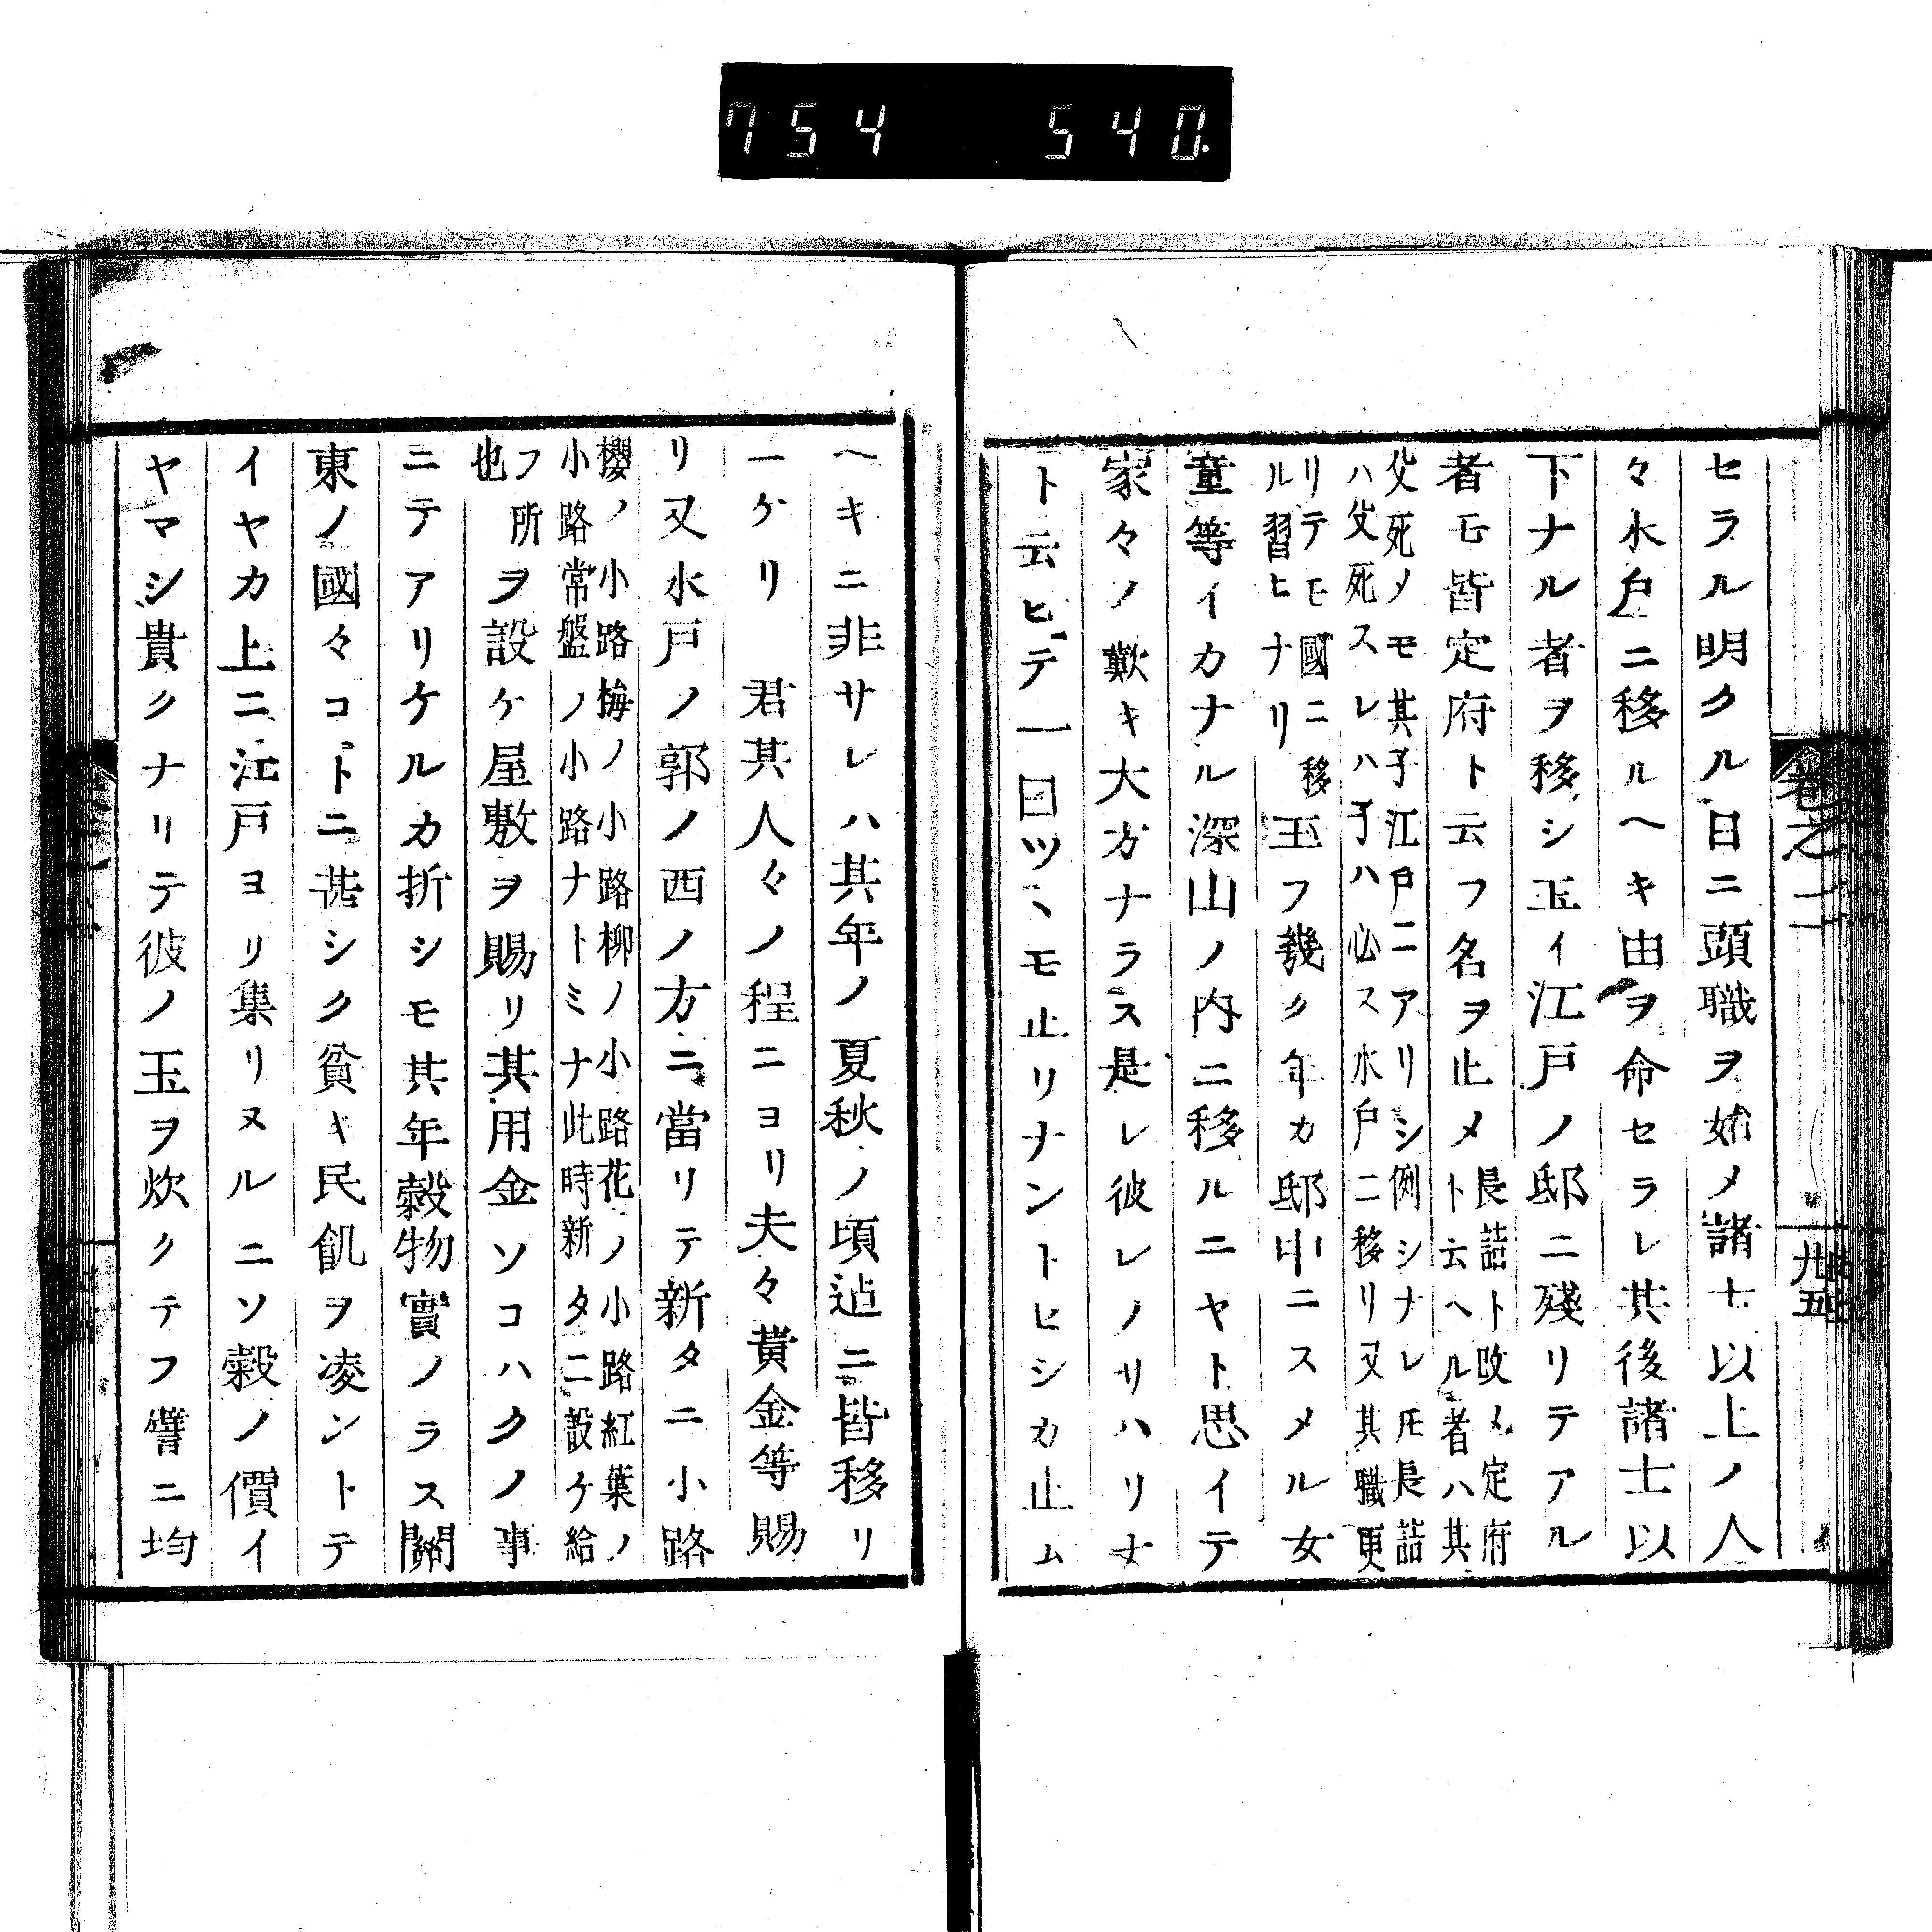 754 540.
セラル明クル日ニ頭職ヲ始メ諸士以上ノ人
々水戸ニ移ルヘキ由ヲ命セラレ其後諸士以
下ナル者ヲ移シ玉イ江戸ノ邸ニ殘リテアル
者モ皆定府ト云フ名ヲ止メ
長詰ト改メ定府
ト云ヘル者ハ其
父死ノモ其子江戸ニアリシ例シナレ𪜈長詰
ハ父死スレハ子ハ必ス水戸ニ移リ又其職更
リテモ國ニ移
ル習ヒナリ
玉フ幾ク年カ邸中ニスメル女
童等イカナル深山ノ内ニ移ルニヤト思イテ
家々ノ歎キ大方ナラス是レ彼レノサハリナ
ト云ヒテ一日ツヽモ止リナントヒシカ止ム
ヘキニ非サレハ其年ノ夏秋ノ頃迠ニ皆移リ
ーケリ 君其人々ノ程ニヨリ夫々黄金等賜
リ又水戸ノ郭ノ西ノ方ニ當リテ新タニ小路
櫻ノ小路梅ノ小路柳ノ小路花ノ小路紅葉ノ
小路常盤ノ小路ナトミナ此時新タニ設ケ給
フ所
也
ヲ設ケ屋敷ヲ賜リ其用金ソコハクノ事
ニテアリケルカ折シモ其年穀物實ノラス關
東ノ國々コトニ甚シク貧キ民飢ヲ凌ントテ
イヤカ上ニ江戸ヨリ集リヌルニソ穀ノ價イ
ヤマシ貴クナリテ彼ノ玉ヲ炊クテフ譬ニ均
卷之二
廿五